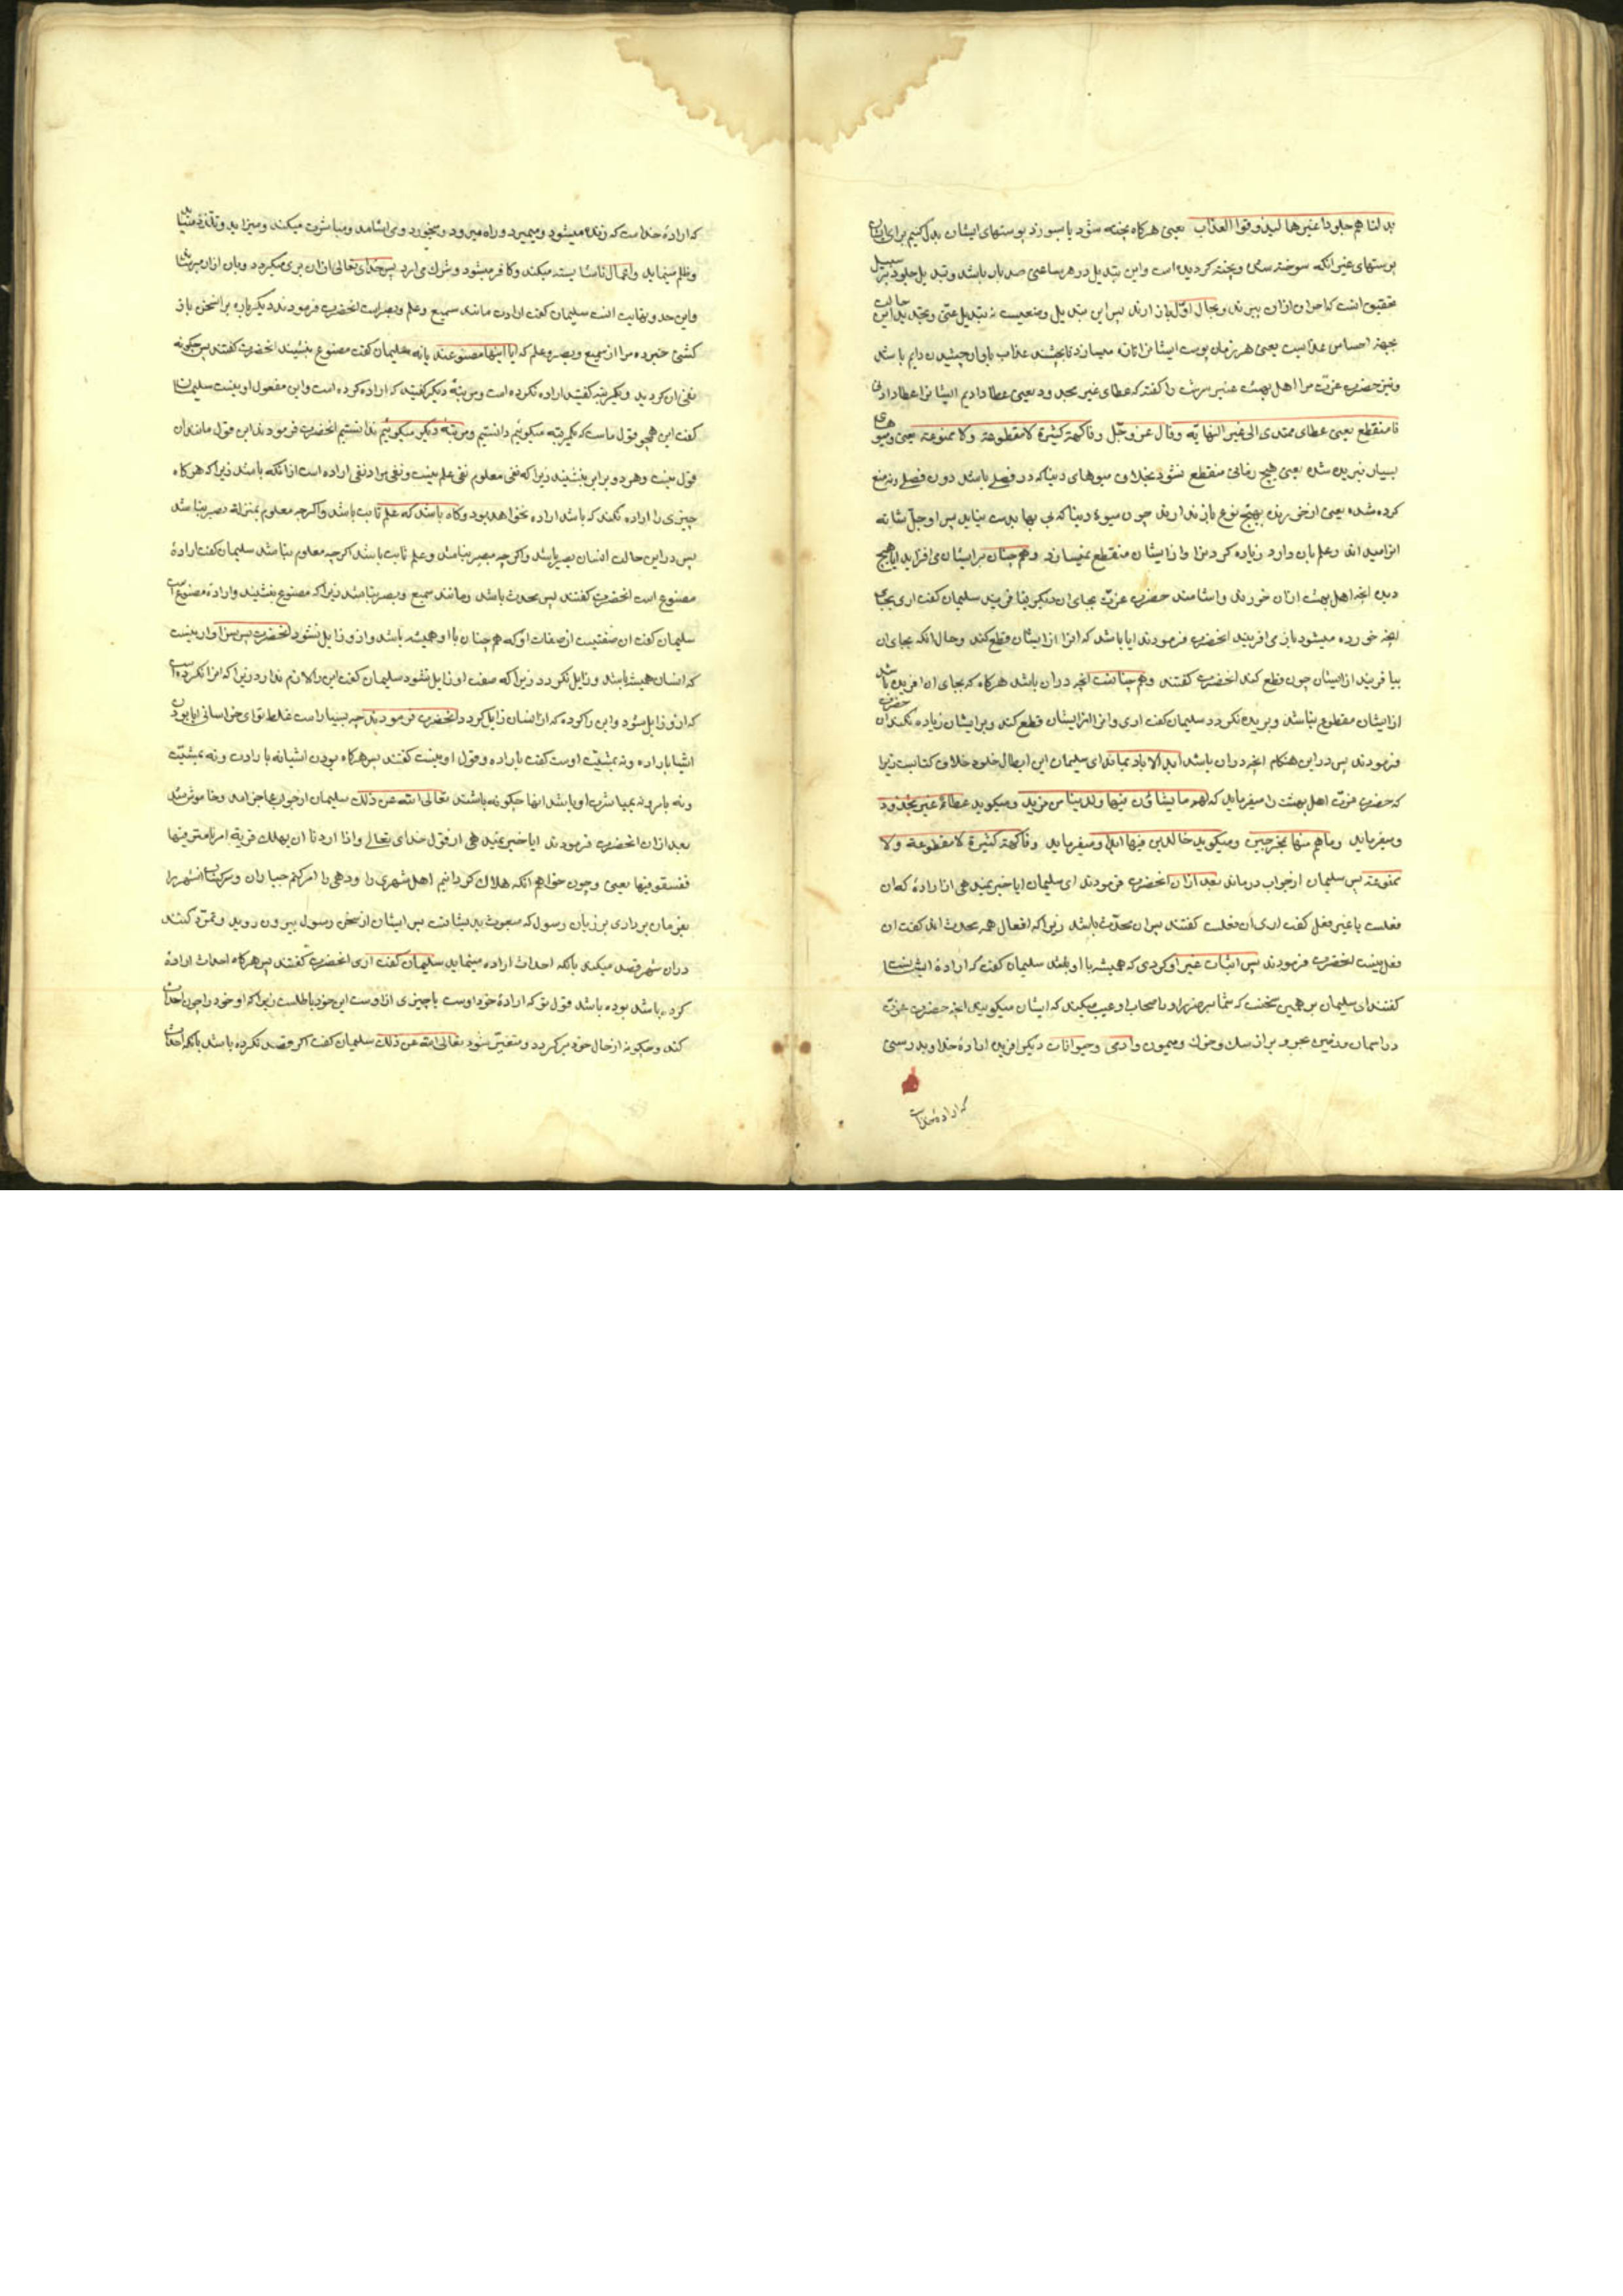 بدلناهم جلودا غیرها لیذوقوا العذاب یعنی هرکاه پخته شود یا بسوزد پوستهای ایشان بدل کنیم برای ایشان
پوستهای غیر انکه سوخته شده و پخته کردیده است و این تبدیل در هر ساعتی صد بار باشد و تبدیل جلود بر سبیل
تحقیق انست که احراق ازان ببرند و بحال اول باز ارند پس این تبدیل وضعیست نه تبدیل عینی و تجدید این حالت
بجهة احساس عذابست یعنی هر زمان پوست ایشانرا تازه میسازد تا بچشند عذاب را و ان چشیدن دایم باشد
و نیز حضرت عزت مر اهل بهشت عنبر سرشت را کفته که عطای غیر مجذوذ یعنی عطا دادیم ایشانرا عطا دادنی
نامنقطع یعنی عطای ممتدی الی غیر النهایه و قال عز و جل و فاکهة کثیرة لا مقطوعة و لا ممنوعة یعنی و میوهای
بسیار نبریده شده یعنی هیچ زمانی منقطع نشود بخلاف میوهای دنیا که در فصلی باشد دون فصلی و نه منع
کرده شده یعنی از خورنده بهیچ نوع باز ندارند چون میوهٔ دنیا که بی بها بدست نیاید پس او جل شانه
انرا میداند و علم بان دارد و زیاده کردنرا و از ایشان منقطع نمیسازد و همچنان بر ایشان می افزاید ایا هیچ
دیده انچه اهل بهشت ازان خورند و اشامند حضرت عزت بجای ان دیکر نیافریند سلیمان کفت اری بجای
انچه خورده میشود باز می افریند انحضرت فرمودند ایا باشد که انرا از ایشان قطع کند و حال انکه بجای ان
بیافریند از ایشان چون قطع کند انحضرت کفتند و همچنانست انچه دران باشد هرکاه که بجای ان افریده باشد
از ایشان مقطوع نباشد و بریده نکردد سلیمان کفت اری و انرا از ایشان قطع کند و بر ایشان زیاده نکند ان حضرت
فرمودند پس در این هنکام انچه دران باشد ابد الاباد نماند ای سلیمان این ابطال خلود و خلاف کتابست زیرا
که حضرت عزت اهل بهشت را میفرماید که لهم ما یشاؤن فیها و لدینا مزید و میکوید عطاء غیر مجذوذ
و میفرماید و ما هم منها بمخرجین و میکوید خالدین فیها ابدا و میفرماید و فاکهة کثیرة لا مقطوعة و لا
ممنوعة پس سلیمان از جواب درماند بعد ازان انحضرت فرمودند ای سلیمان ایا خبر نمیدهی از ارادهٔ که ان
فعلست یا غیر فعل کفت اری ان فعلست کفتند پس ان محدث باشد زیرا که افعال همه محدث اند کفت ان
فعل نیست انحضرت فرمودند پس اثبات غیر او کردی که همیشه با او باشد سلیمان کفت که ارادهٔ انشاست
کفتند ای سلیمان بس همین سخنست که شما بر ضرار و اصحاب او عیب میکنید که ایشان میکویند انچه حضرت عزت
در اسمان و زمین و بحر و بر از سک و خوک و میمون و ادمی و حیوانات دیکر افریده ارادهٔ خدا و بدرستی
که ارادهٔ خداست
که ارادهٔ خداست که زنده میشود و میمیرد و راه میرود و میخورد و می اشامد و مباشرت میکند و میزاید و تلذذ مییابد
و ظلم مینماید و اعمال ناشایسته میکند و کافر میشود و شرک می ارد پس خدای تعالی ازان بری میکردد
و این حد و نهایت انست سلیمان کفت ارادت مانند سمیع و علم و بصر است انحضرت فرمودند دیکر باره بر این سخن باز
کشتی خبر ده مرا از سمیع و بصر و علم که ایا اینها مصنوعند یا نه سلیمان کفت مصنوع نیستند انحضرت کفتند پس چکونه
نفی ان کردید و یکمرتبه کفتید اراده نکرده است و مرتبهٔ دیکر کفتید که اراده کرده است و این مفعول او نیست سلیمان
کفت این همچو قول ماست که یکمرتبه میکوئیم دانستیم و مرتبهٔ دیکر میکوئیم ندانستیم انحضرت فرمودند این قول مانند ان
قول نیست و هر دو برابر نیستند زیرا که نفی معلوم نفی علم نیست و نفی مراد نفی اراده است از انکه باشد زیرا که هرکاه
چیزی را اراده نکند که باشد اراده نخواهد بود و کاه باشد که علم ثابت باشد و اکرچه معلوم بمنزلهٔ بصر نباشد
پس در این حالت انسان بصیر باشد و اکرچه مبصر نباشد و علم ثابت باشد اکرچه معلوم نباشد سلیمان کفت ارادهٔ
مصنوع است انحضرت کفتند پس محدث باشد و مانند سمیع و بصر نباشد زیرا که مصنوع نیستند و ارادهٔ مصنوع است
سلیمان کفت ان صفتیست از صفات او که همچنان با او همیشه باشد و از و زایل نشود انحضرت پس سزاوار نیست
که انسان همیشه باشد و زایل نکردد زیرا که صفت او زایل نشود سلیمان کفت این را لازم ندارد زیرا که انرا نکرده است
که ازو زایل شود و این را کرده که از انسان زایل کردد انحضرت فرمودند چه بسیار است غلط تو ای خراسانی ایا بودن
اشیا باراده و نه بمشیت اوست کفت باراده و قول او نیست کفتند پس هرکاه بودن اشیا نه بارادت و نه بمشیت
و نه بامر و نه بمباشرت او باشد انها چکونه باشند تعالی الله عن ذلک سلیمان از جواب عاجز امد و خاموش شد
بعد ازان انحضرت فرمودند ایا خبر نمیدهی از قول خدای تعالی و اذا اردنا ان نهلک قریة امرنا مترفیها
ففسقوا فیها یعنی و چون خواهیم انکه هلاک کردانیم اهل شهری را و دهی را امر کنیم جباران و سرکشان انشهر را
بفرمان برداری بر زبان رسول که مبعوث بدیشانست پس ایشان از سخن رسول بیرون روند و تمرد کنند
دران شهر قصد میکند بانکه احداث اراده مینماید سلیمان کفت اری انحضرت کفتند پس هرکاه احداث ارادهٔ
کرده باشد بوده باشد قول تو که ارادهٔ خود اوست یا چیزی از اوست این خود باطلست زیرا که او خود را چون احداث
کند و چکونه از حال خود برکردد و متغیر شود تعالی الله عن ذلک سلیمان کفت اکر قصد نکرده باشد بانکه احداث